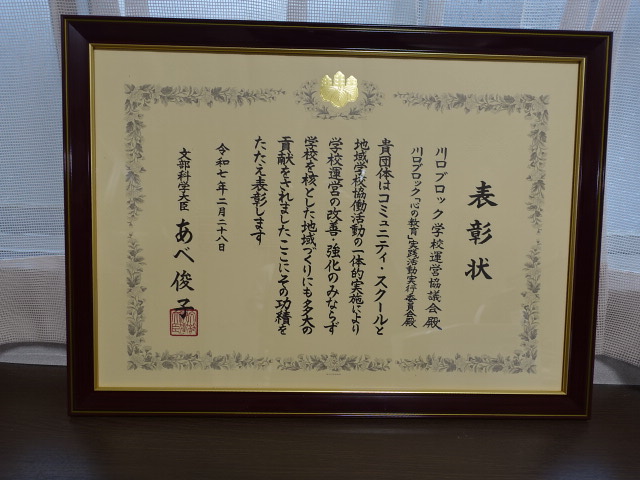 表彰状
川口ブロック学校運営協議会殿
川口ブロック「心の教育」実践活動実行委員会殿
貴団体はコミュニティ・スクールと
地域学校協働活動の一体的実施により
学校運営の改善・強化のみならず
学校を核とした地域づくりにも多大の
貢献をされましたここにその功績を
たたえ表彰します
令和七年二月二十八日
文部科学大臣 あべ俊子